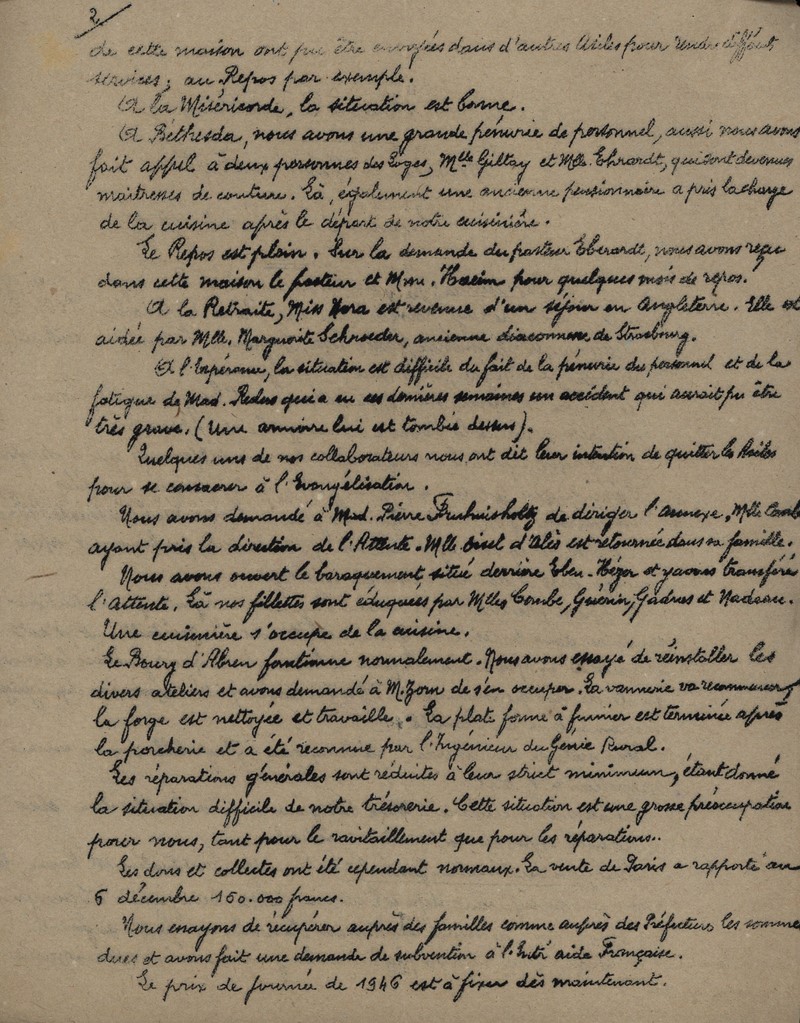 2
de cette maison ont pu être envoyées dans d'autres Asiles pour rendre différents
services; au Repos par exemple.
A la Miséricorde, la situation est bonne.
A Béthesda, nous avons une grande pénurie de personnel, aussi nous avons
fait appel à deux personnes des Loges, Mlle Giltay et Mlle Ehrardt, qui sont devenues
maîtresses de couture. Là, également une ancienne pensionnaire a pris la charge
de la cuisine après le départ de notre cuisinière.
Le Repos est plein. Sur la demande du pasteur Eberardt, nous avons reçu
dans cette maison le pasteur et Mme. pour quelques mois de repos.
A la Retraite, Miss Hora est revenue d'un séjour en Angleterre. Elle est
aidée par Mlle. Marguerite Schroeder, ancienne diaconesse de Strasbourg.
A l'Espérance, la situation est difficile du fait de la pénurie du personnel et de la
fatigue de Mad. qui a eu ces dernières semaines un accident qui aurait pu être
très grave. (Une armoire lui est tombée dessus).
Quelques uns de nos collaborateurs nous ont dit leur intention de quitter les Asiles
pour se consacrer à l'Evangélisation.
Nous avons demandé à Mad. Pierre Fruhinsholtz de diriger l'Annexe, Mlle Combe
ayant pris la direction de l'Attente. Mlle d'Alès est retournée dans sa famille.
Nous avons ouvert le baraquement situé derrière Eben-Hézer et y avons transféré
l'Attente. Là nos fillettes sont éduquées par Mlles Combe, Guérin, Gadras et Nadeau.
Une cuisinière s'occupe de la cuisine.
Le Bourg d'Abren fonctionne normalement. Nous avons essayé de réinstaller les
divers ateliers et avons demandé à M. Zorn de s'en occuper. La vannerie va recommencer,
la forge est nettoyée et travaille. La plate forme à fumier est terminée après
la porcherie et a été reconnue par l'Ingénieur du Génie Rural.
Les réparations générales sont réduites à leur strict minimum, étant donné
la situation difficile de notre trésorerie. Cette situation est une grosse préoccupation
pour nous, tant pour le ravitaillement que pour les réparations..
Les dons et collectes ont été cependant normaux. La vente de Paris a rapporté au
6 décembre 160.000 francs.
Nous essayons de récupérer auprès des familles comme auprès des Préfectures les sommes
dues et avons fait une demande de subvention à l'Entr'aide Française.
Le prix de journée de 1946 est à fixer dès maintenant.